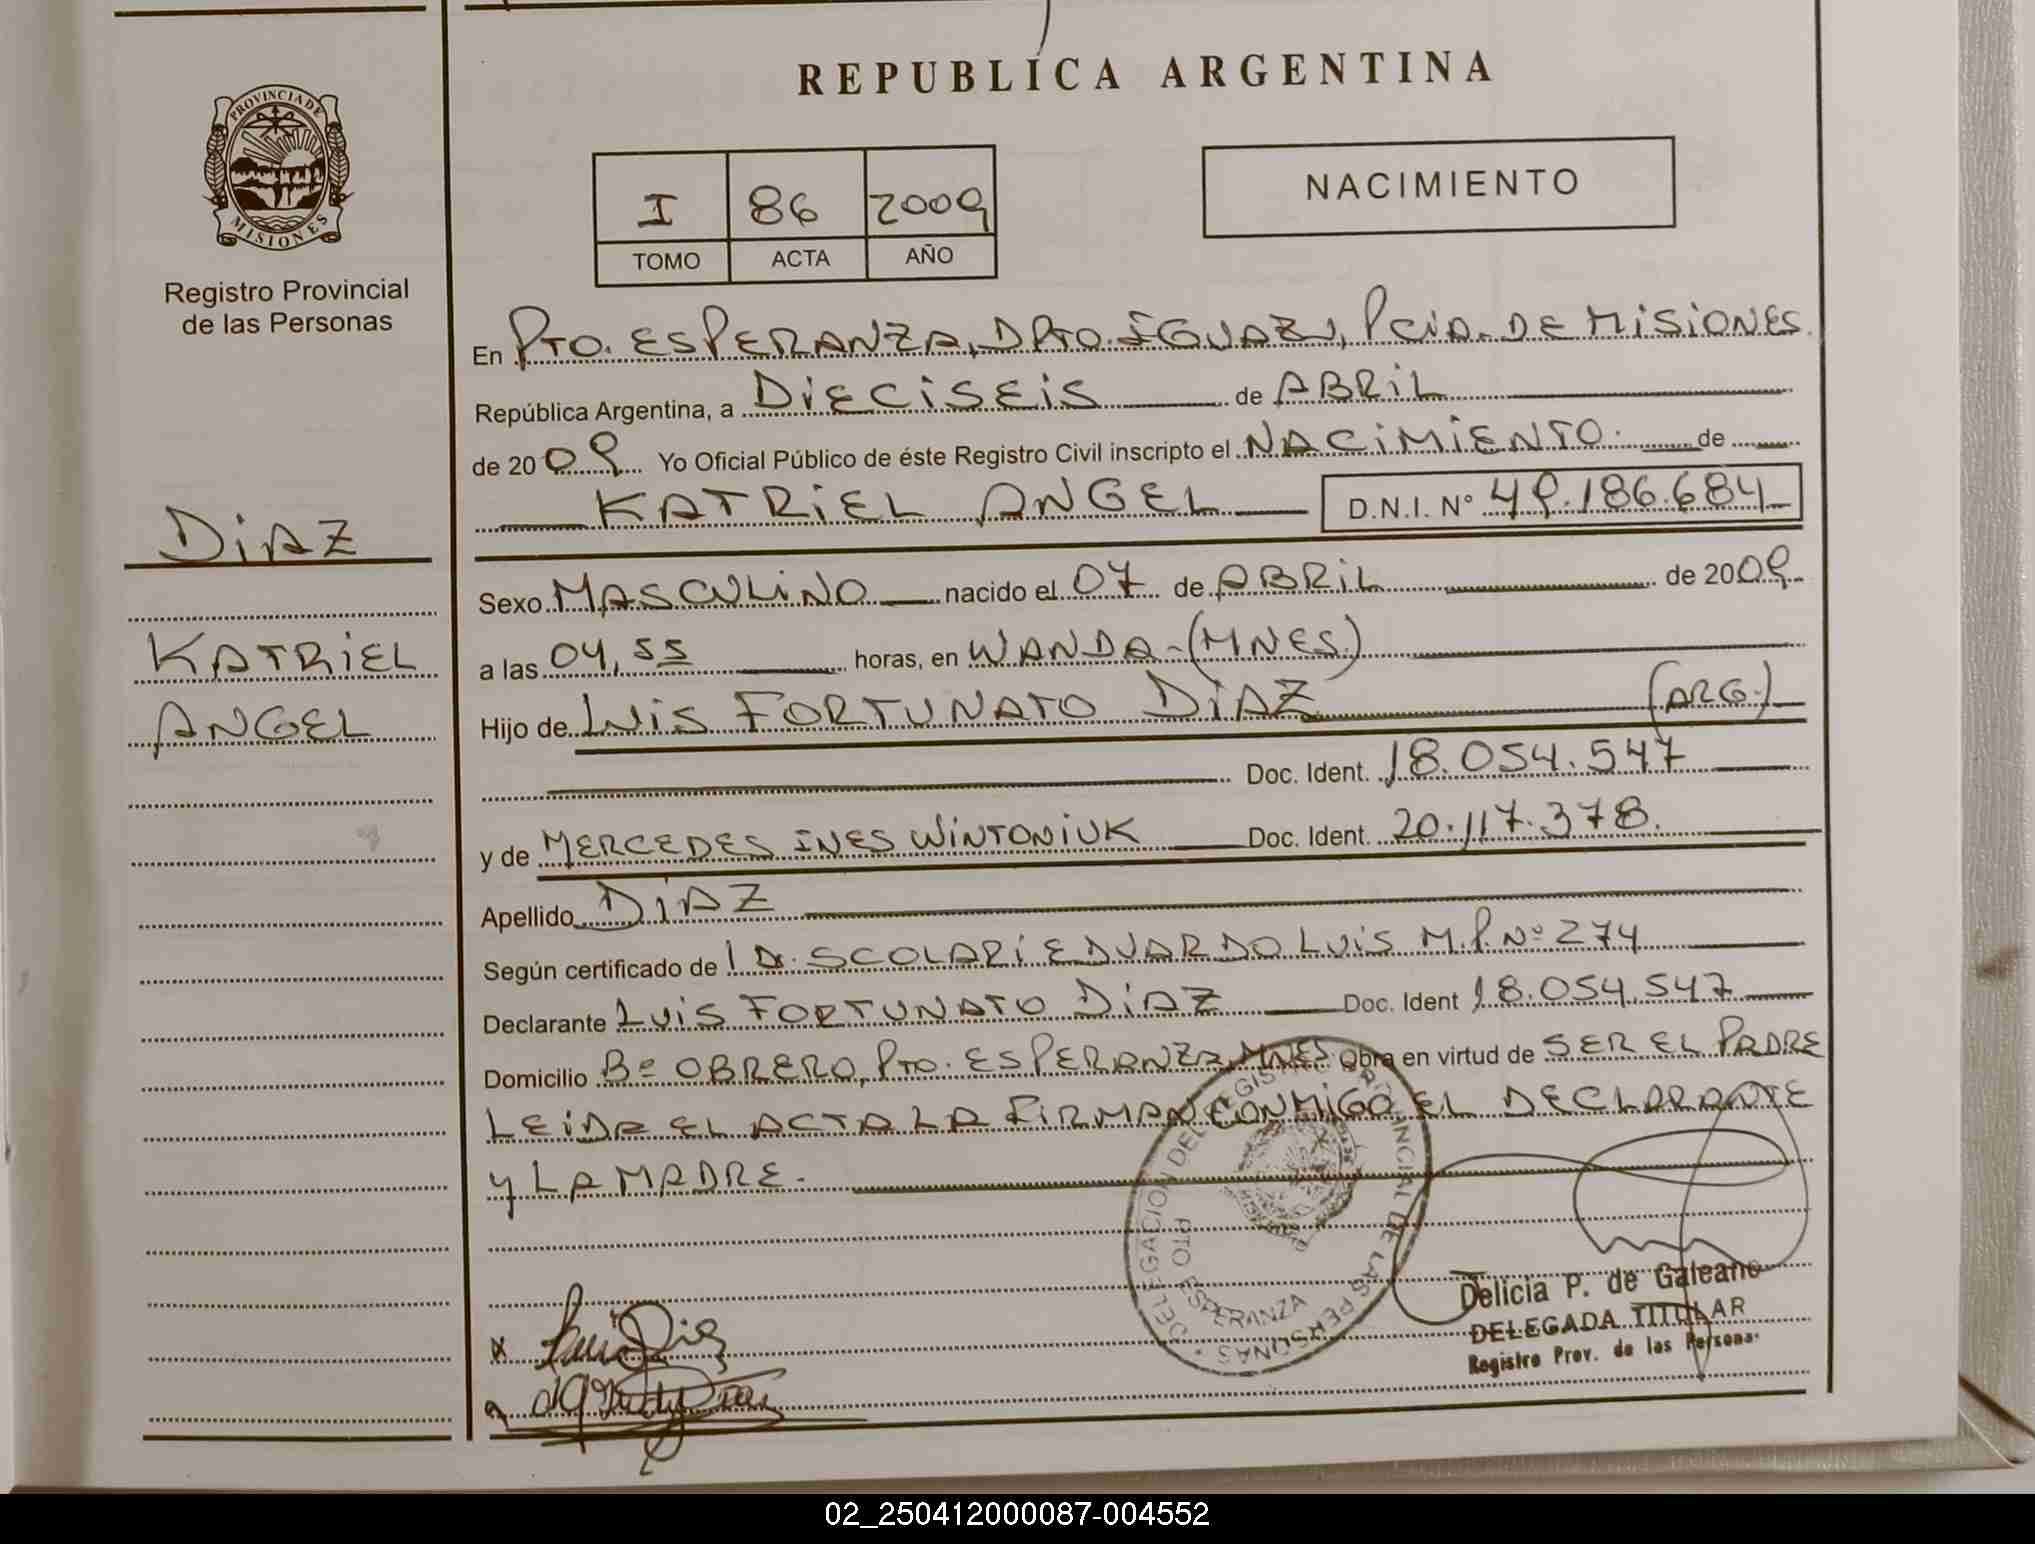 REPUBLICA ARGENTINA
PROVINCIA DE
MISIONES
Registro Provincial
de las Personas
I 86 2009
TOMO ACTA AÑO
NACIMIENTO
En PTO. ESPERANZA, DPTO. IGUAZU, PCIA. DE MISIONES
República Argentina, a DIECISEIS de ABRIL
de 2009 Yo Oficial Público de éste Registro Civil inscripto el NACIMIENTO. de
KATRIEL ANGEL D.N.I. Nº 49.186.684
DIAZ
KATRIEL
ANGEL
Sexo MASCULINO nacido el 07 de ABRIL de 2009
a las 04,55 horas, en WANDA-(MNES)
Hijo de LUIS FORTUNATO DIAZ (ARG.)
Doc. Ident. 18.054.547
y de MERCEDES INES WINTONIUK Doc. Ident. 20.117.378.
Apellido DIAZ
Según certificado de 1 Dr. SCOLARI EDUARDO LUIS M.P. Nº 274
Declarante LUIS FORTUNATO DIAZ Doc. Ident 18.054.547
Domicilio Bº OBRERO, PTO. ESPERANZA, MNES Obra en virtud de SER EL PADRE
LEIDA EL ACTA LA FIRMAN CONMIGO EL DECLARANTE
Y LA MADRE.
DELEGACION DEL REGISTRO PROVINCIAL DE LAS PERSONAS
PTO ESPERANZA
Delicia P. de Galeano
DELEGADA TITULAR
Registro Prov. de las Personas
x Luis Diaz
02_250412000087-004552